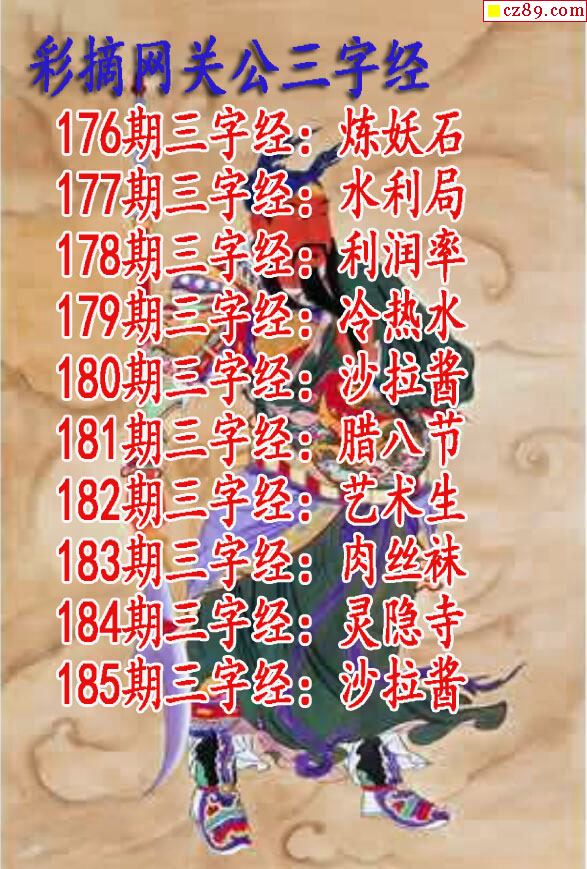 cz89.com
彩摘网关公三字经
176期三字经：炼妖石
177期三字经：水利局
178期三字经：利润率
179期三字经：冷热水
180期三字经：沙拉酱
181期三字经：腊八节
182期三字经：艺术生
183期三字经：肉丝袜
184期三字经：灵隐寺
185期三字经：沙拉酱